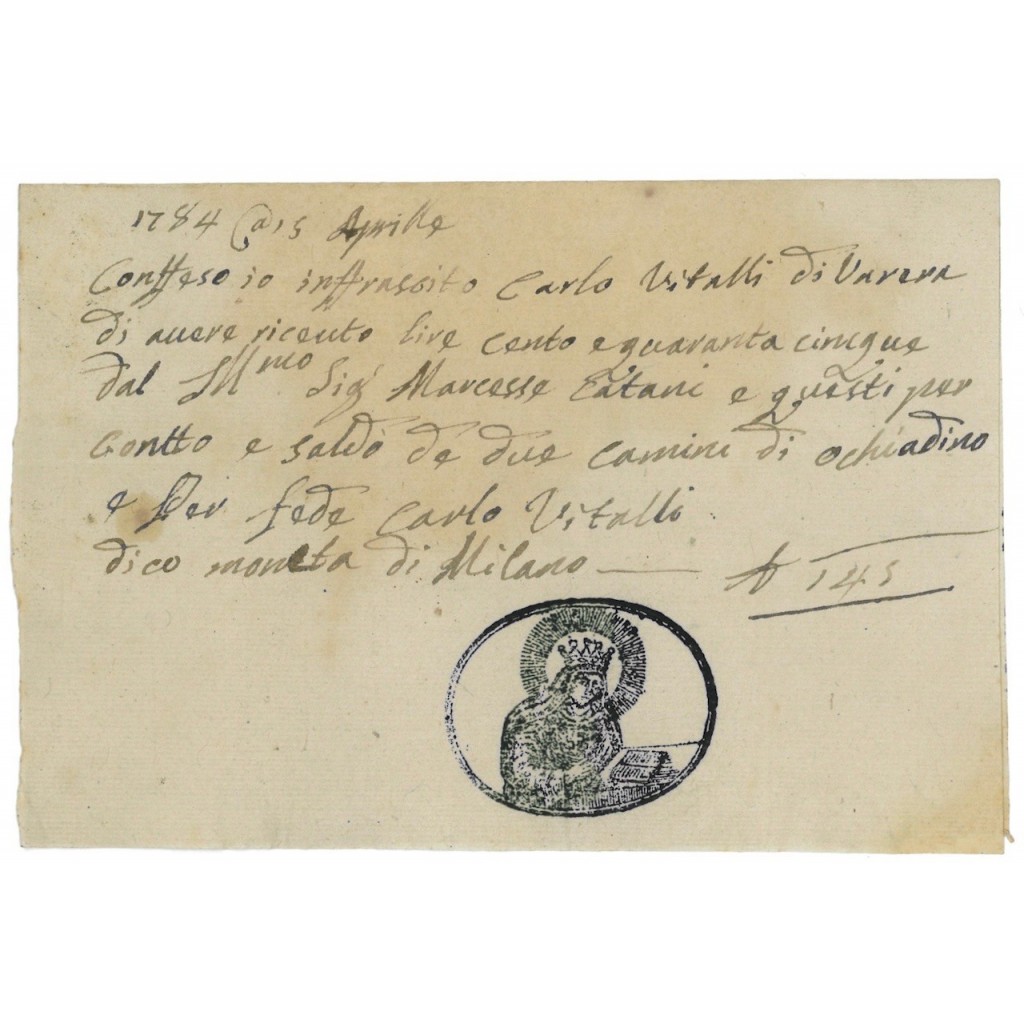 1784 @ 15 Aprille
Conffeso io inffrassito Carlo Vitalli di Varera
di auere riceuto lire cento e quaranta cinque
dal Ill.mo Sig.r Marcesse Catani e questi per
Contto e saldo de due Camini di ochiadino
e Per fede Carlo Vitalli
dico moneta di Milano — 145